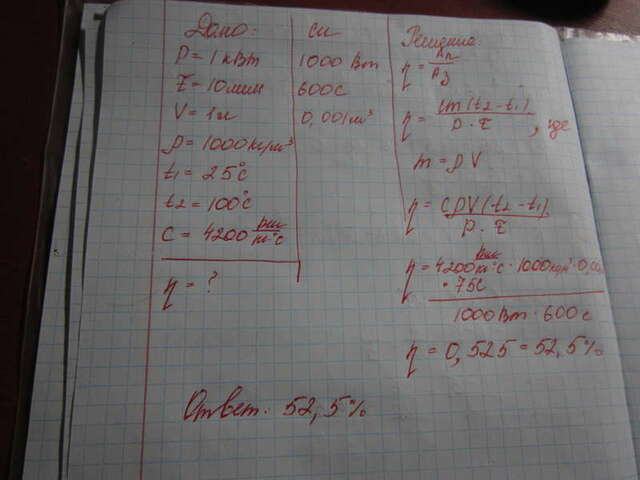 Дано:
P = 1 кВт
τ = 10 мин
V = 1 л
ρ = 1000 кг/м³
t₁ = 25°C
t₂ = 100°C
c = 4200 Дж/кг°C
η = ?
СИ
1000 Вт
600 с
0,001 м³
Решение:
η = Aп/Aз
η = cm(t₂ - t₁)/P · τ, где
m = ρV
η = cρV(t₂ - t₁)/P · τ
η = 4200 · 1000 кг/м³ · 0,00
· 75C
1000 Вт · 600 с
η = 0,525 = 52,5%
Ответ: 52,5%